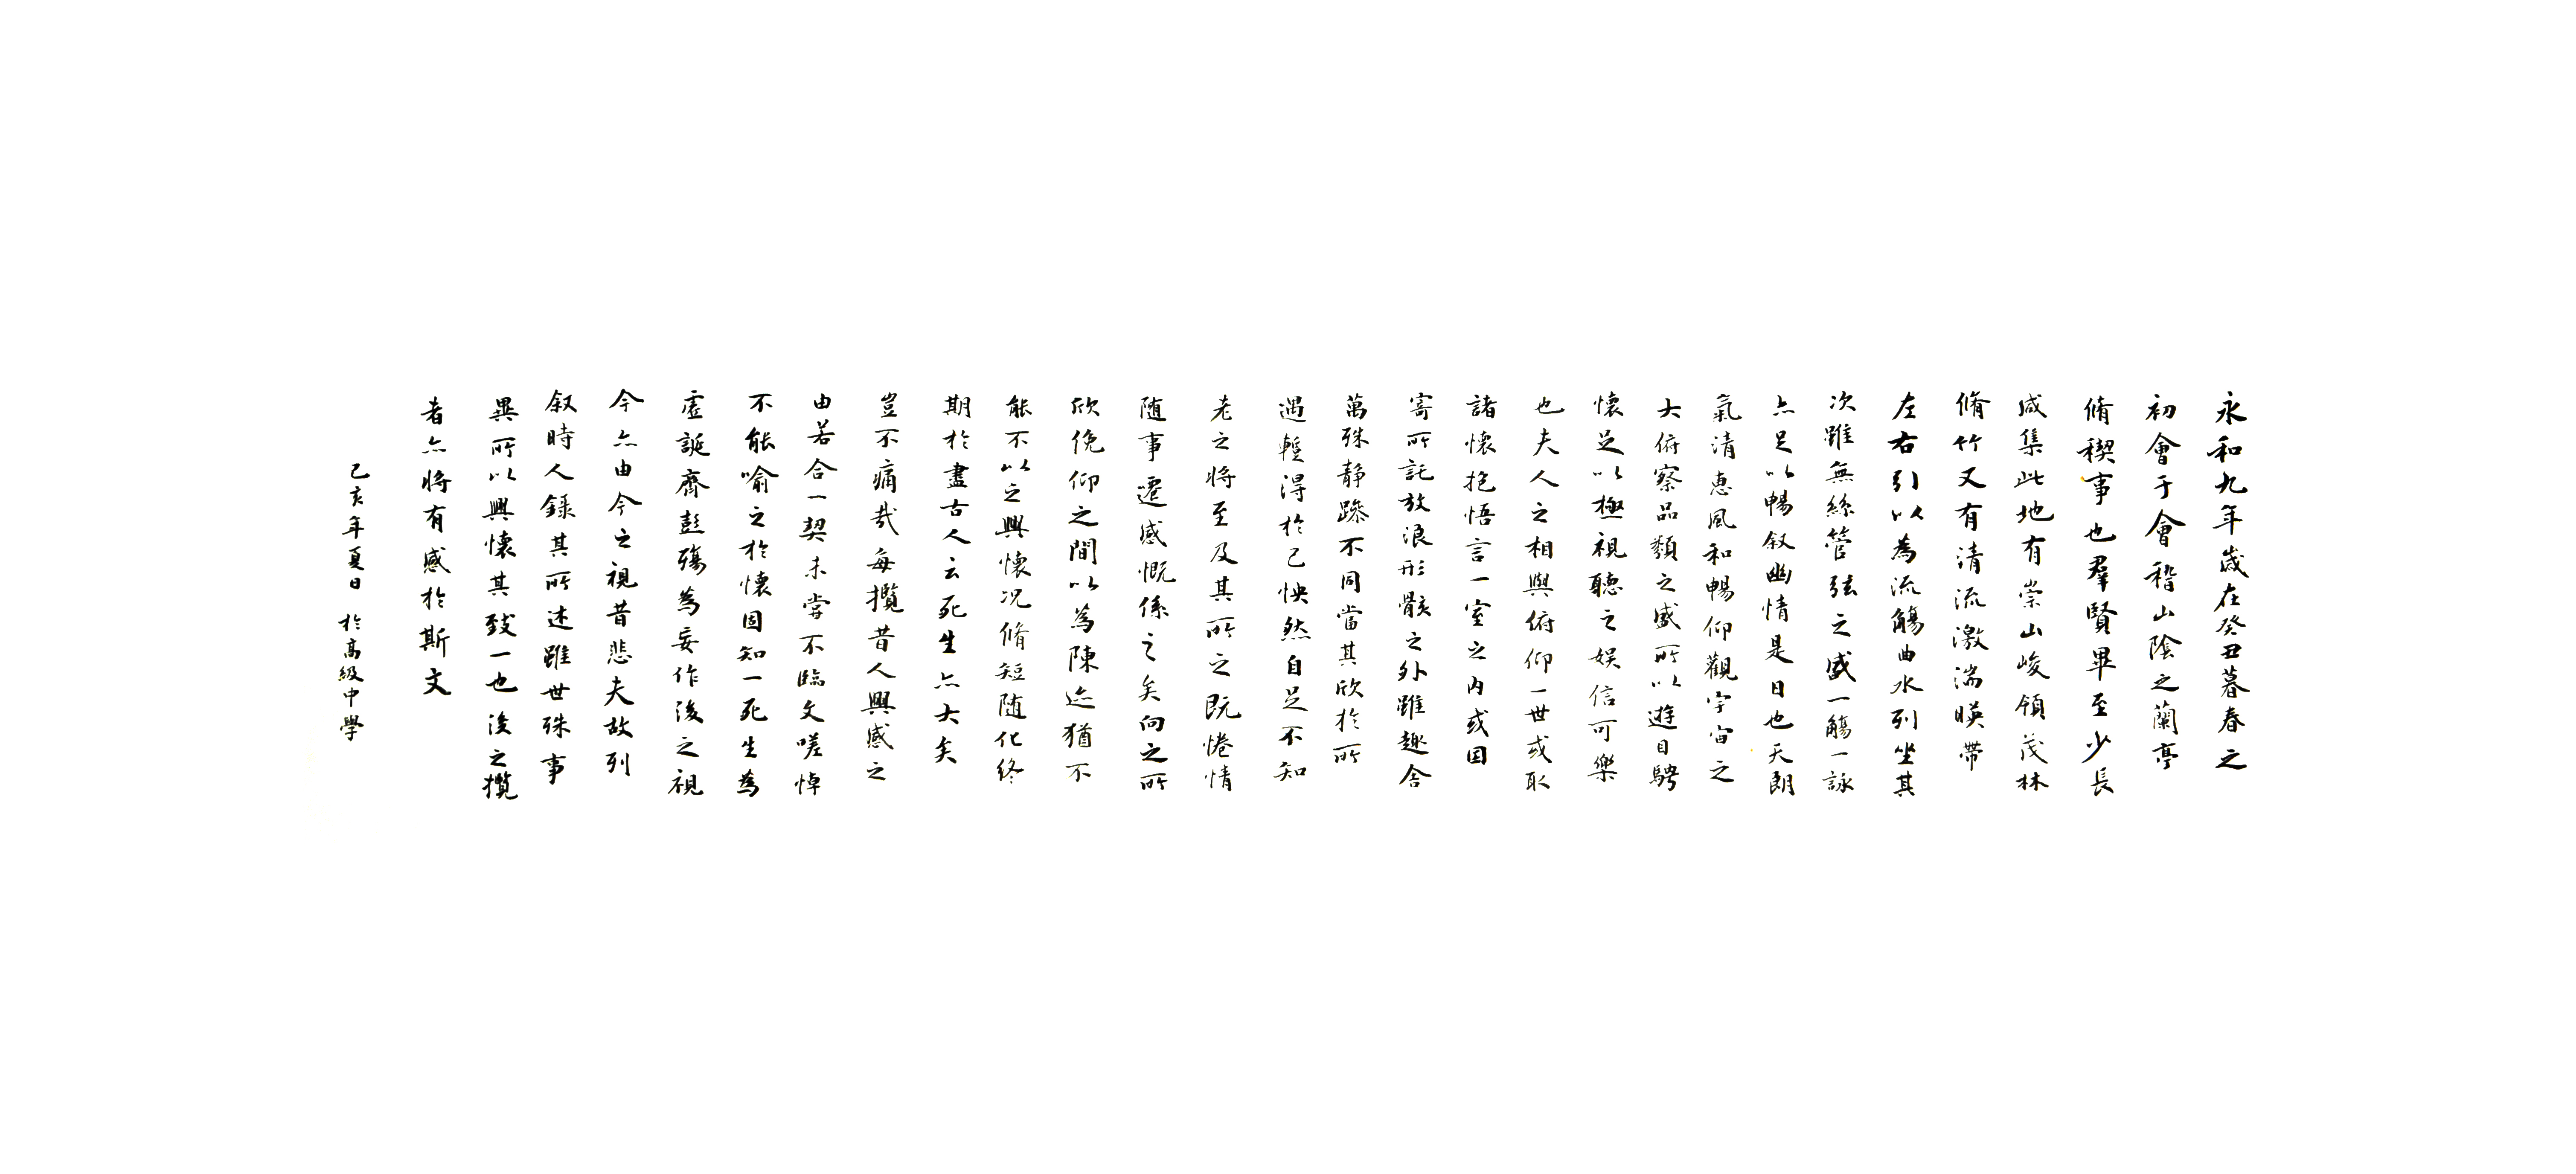 永和九年歲在癸丑暮春之
初會于會稽山陰之蘭亭
脩稧事也羣賢畢至少長
咸集此地有崇山峻領茂林
脩竹又有清流激湍暎帶
左右引以為流觴曲水列坐其
次雖無絲管弦之盛一觴一詠
亦足以暢叙幽情是日也天朗
氣清惠風和暢仰觀宇宙之
大俯察品類之盛所以遊目騁
懷足以極視聽之娛信可樂
也夫人之相與俯仰一世或取
諸懷抱悟言一室之內或因
寄所託放浪形骸之外雖趣舍
萬殊靜躁不同當其欣於所
遇輕得於己怏然自足不知
老之將至及其所之既惓情
随事遷感慨係之矣向之所
欣俛仰之間以為陳迹猶不
能不以之興懷況脩短随化終
期於盡古人云死生亦大矣
豈不痛哉每攬昔人興感之
由若合一契未嘗不臨文嗟悼
不能喻之於懷固知一死生為
虛誕齊彭殤為妄作後之視
今亦由今之視昔悲夫故列
叙時人錄其所述雖世殊事
異所以興懷其致一也後之攬
者亦將有感於斯文
己亥年夏日 於高級中學